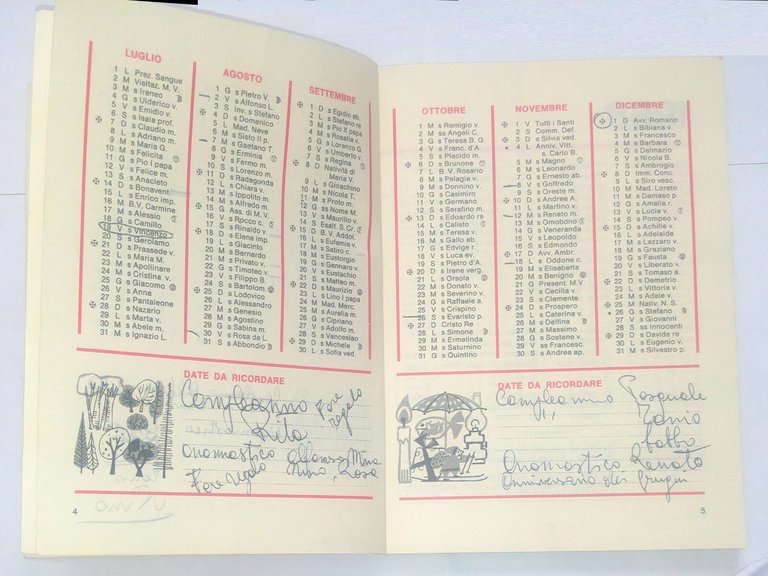 LUGLIO
1 L Prez. Sangue
2 M Visitaz. M. V.
3 M s Ireneo
4 G s Ulderico v.
5 V s Emidio v.
6 S s Isaia prof.
7 D s Claudio m.
8 L s Adriano m.
9 M s Maria G.
10 M s Felicita
11 G s Pio I papa
12 V s Felice m.
13 S s Anacleto
14 D s Bonavent.
15 L s Enrico imp.
16 M B.V. Carmine
17 M s Alessio
18 G s Camillo
19 V s Vincenzo
20 S s Gerolamo
21 D s Prassede v.
22 L s Maria M.
23 M s Apollinare
24 M s Cristina v.
25 G s Giacomo
26 V s Anna
27 S s Pantaleone
28 D s Nazario
29 L s Marta v.
30 M s Abele m.
31 M s Ignazio L.
AGOSTO
1 G s Pietro V.
2 V s Alfonso L.
3 S Inv. s Stefano
4 D s Domenico
5 L Mad. Neve
6 M s Sisto II p.
7 M s Gaetano T.
8 G s Erminia
9 V s Fermo m.
10 S s Lorenzo m.
11 D s Radegonda
12 L s Chiara v.
13 M s Ippolito m.
14 M s Alfredo m.
15 G Ass. di M. V.
16 V s Rocco c.
17 S s Rinaldo v.
18 D s Elena imp.
19 L s Giacinto
20 M s Bernardo
21 M s Privato v.
22 G s Timoteo v.
23 V s Filippo B.
24 S s Bartolom.
25 D s Lodovico
26 L s Alessandro
27 M s Genesio
28 M s Agostino
29 G s Sabina m.
30 V s Rosa da L.
31 S s Abbondio
SETTEMBRE
1 D s Egidio ab.
2 L s Stefano re
3 M s Pio X papa
4 M s Rosalia v.
5 G s Lorenzo G.
6 V s Umberto v.
7 S s Regina
8 D Natività di
Maria V.
9 L s Gioachino
10 M s Nicola T.
11 M s Proto m.
12 G ss Nome M.
13 V s Maurilio v.
14 S Esalt. S. Cr.
15 D B.V. Addol.
16 L s Eufemia v.
17 M s Satiro c.
18 M s Eustorgio
19 G s Gennaro v.
20 V s Eustachio
21 S s Matteo m.
22 D s Maurizio
23 L s Lino I papa
24 M Mad. Merc.
25 M s Aurelia m.
26 G s Cipriano
27 V s Adolfo m.
28 S s Venceslao
29 D s Michele
30 L s Sofia ved.
DATE DA RICORDARE
Compleanno Fare
regalo
Rita
Onomastico Alfonso
Fare regalo Rosa
4
OTTOBRE
1 M s Remigio v.
2 M ss Angeli C.
3 G s Teresa B. G.
4 V s Franc. d'A.
5 S s Placido m.
6 D s Brunone
7 L B.V. Rosario
8 M s Pelagia v.
9 M s Donnino v.
10 G s Casimiro
11 V s Germano
12 S s Serafino m.
13 D s Edoardo re
14 L s Calisto
15 M s Teresa v.
16 M s Gallo ab.
17 G s Edvige r.
18 V s Luca ev.
19 S s Pietro d'A.
20 D s Irene verg.
21 L s Orsola v.
22 M s Donato v.
23 M s Severino v.
24 G s Raffaele a.
25 V s Crispino
26 S s Evaristo p.
27 D Cristo Re
28 L s Simone
29 M s Ermelinda
30 M s Saturnino
31 G s Quintino
NOVEMBRE
1 V Tutti i Santi
2 S Comm. Def
3 D s Silvia ved.
4 L Anniv. Vitt.
s Carlo B.
5 M s Magno
6 M s Leonardo
7 G s Ernesto ab.
8 V s Goffredo
9 S s Oreste m.
10 D s Andrea A.
11 L s Martino v.
12 M s Renato m.
13 M s Omobono
14 G s Veneranda
15 V s Leopoldo
16 S s Edmondo
17 D Avv. Ambr.
18 L s Oddone c.
19 M s Elisabetta
20 M s Benigno
21 G Present. M.V.
22 V s Cecilia v.
23 S s Clemente
24 D s Prospero
25 L s Caterina v.
26 M s Delfina
27 M s Massimo
28 G s Sostene v.
29 V ss Francesc.
30 S s Andrea ap.
DICEMBRE
1 D Avv. Romano
2 L s Bibiana v.
3 M s Francesco
4 M s Barbara
5 G s Dalmazio
6 V s Nicola B.
7 S s Ambrogio
8 D Imm. Conc.
9 L s Siro vesc.
10 M Mad. Loreto
11 M s Damaso p.
12 G s Amalia r.
13 V s Lucia v.
14 S s Pompeo v.
15 D s Achille v.
16 L s Adelaide
17 M s Lazzaro v.
18 M s Graziano
19 G s Fausta
20 V s Liberato v.
21 S s Tomaso a.
22 D s Demetrio
23 L s Vittoria v.
24 M s Adele v.
25 M Nativ. N. S.
26 G s Stefano
27 V s Giovanni
28 S ss Innocenti
29 D s Davide re
30 L s Eugenio v.
31 M s Silvestro p.
DATE DA RICORDARE
Compleanno Pasquale
Onomastico Renato
Anniversario dei
5